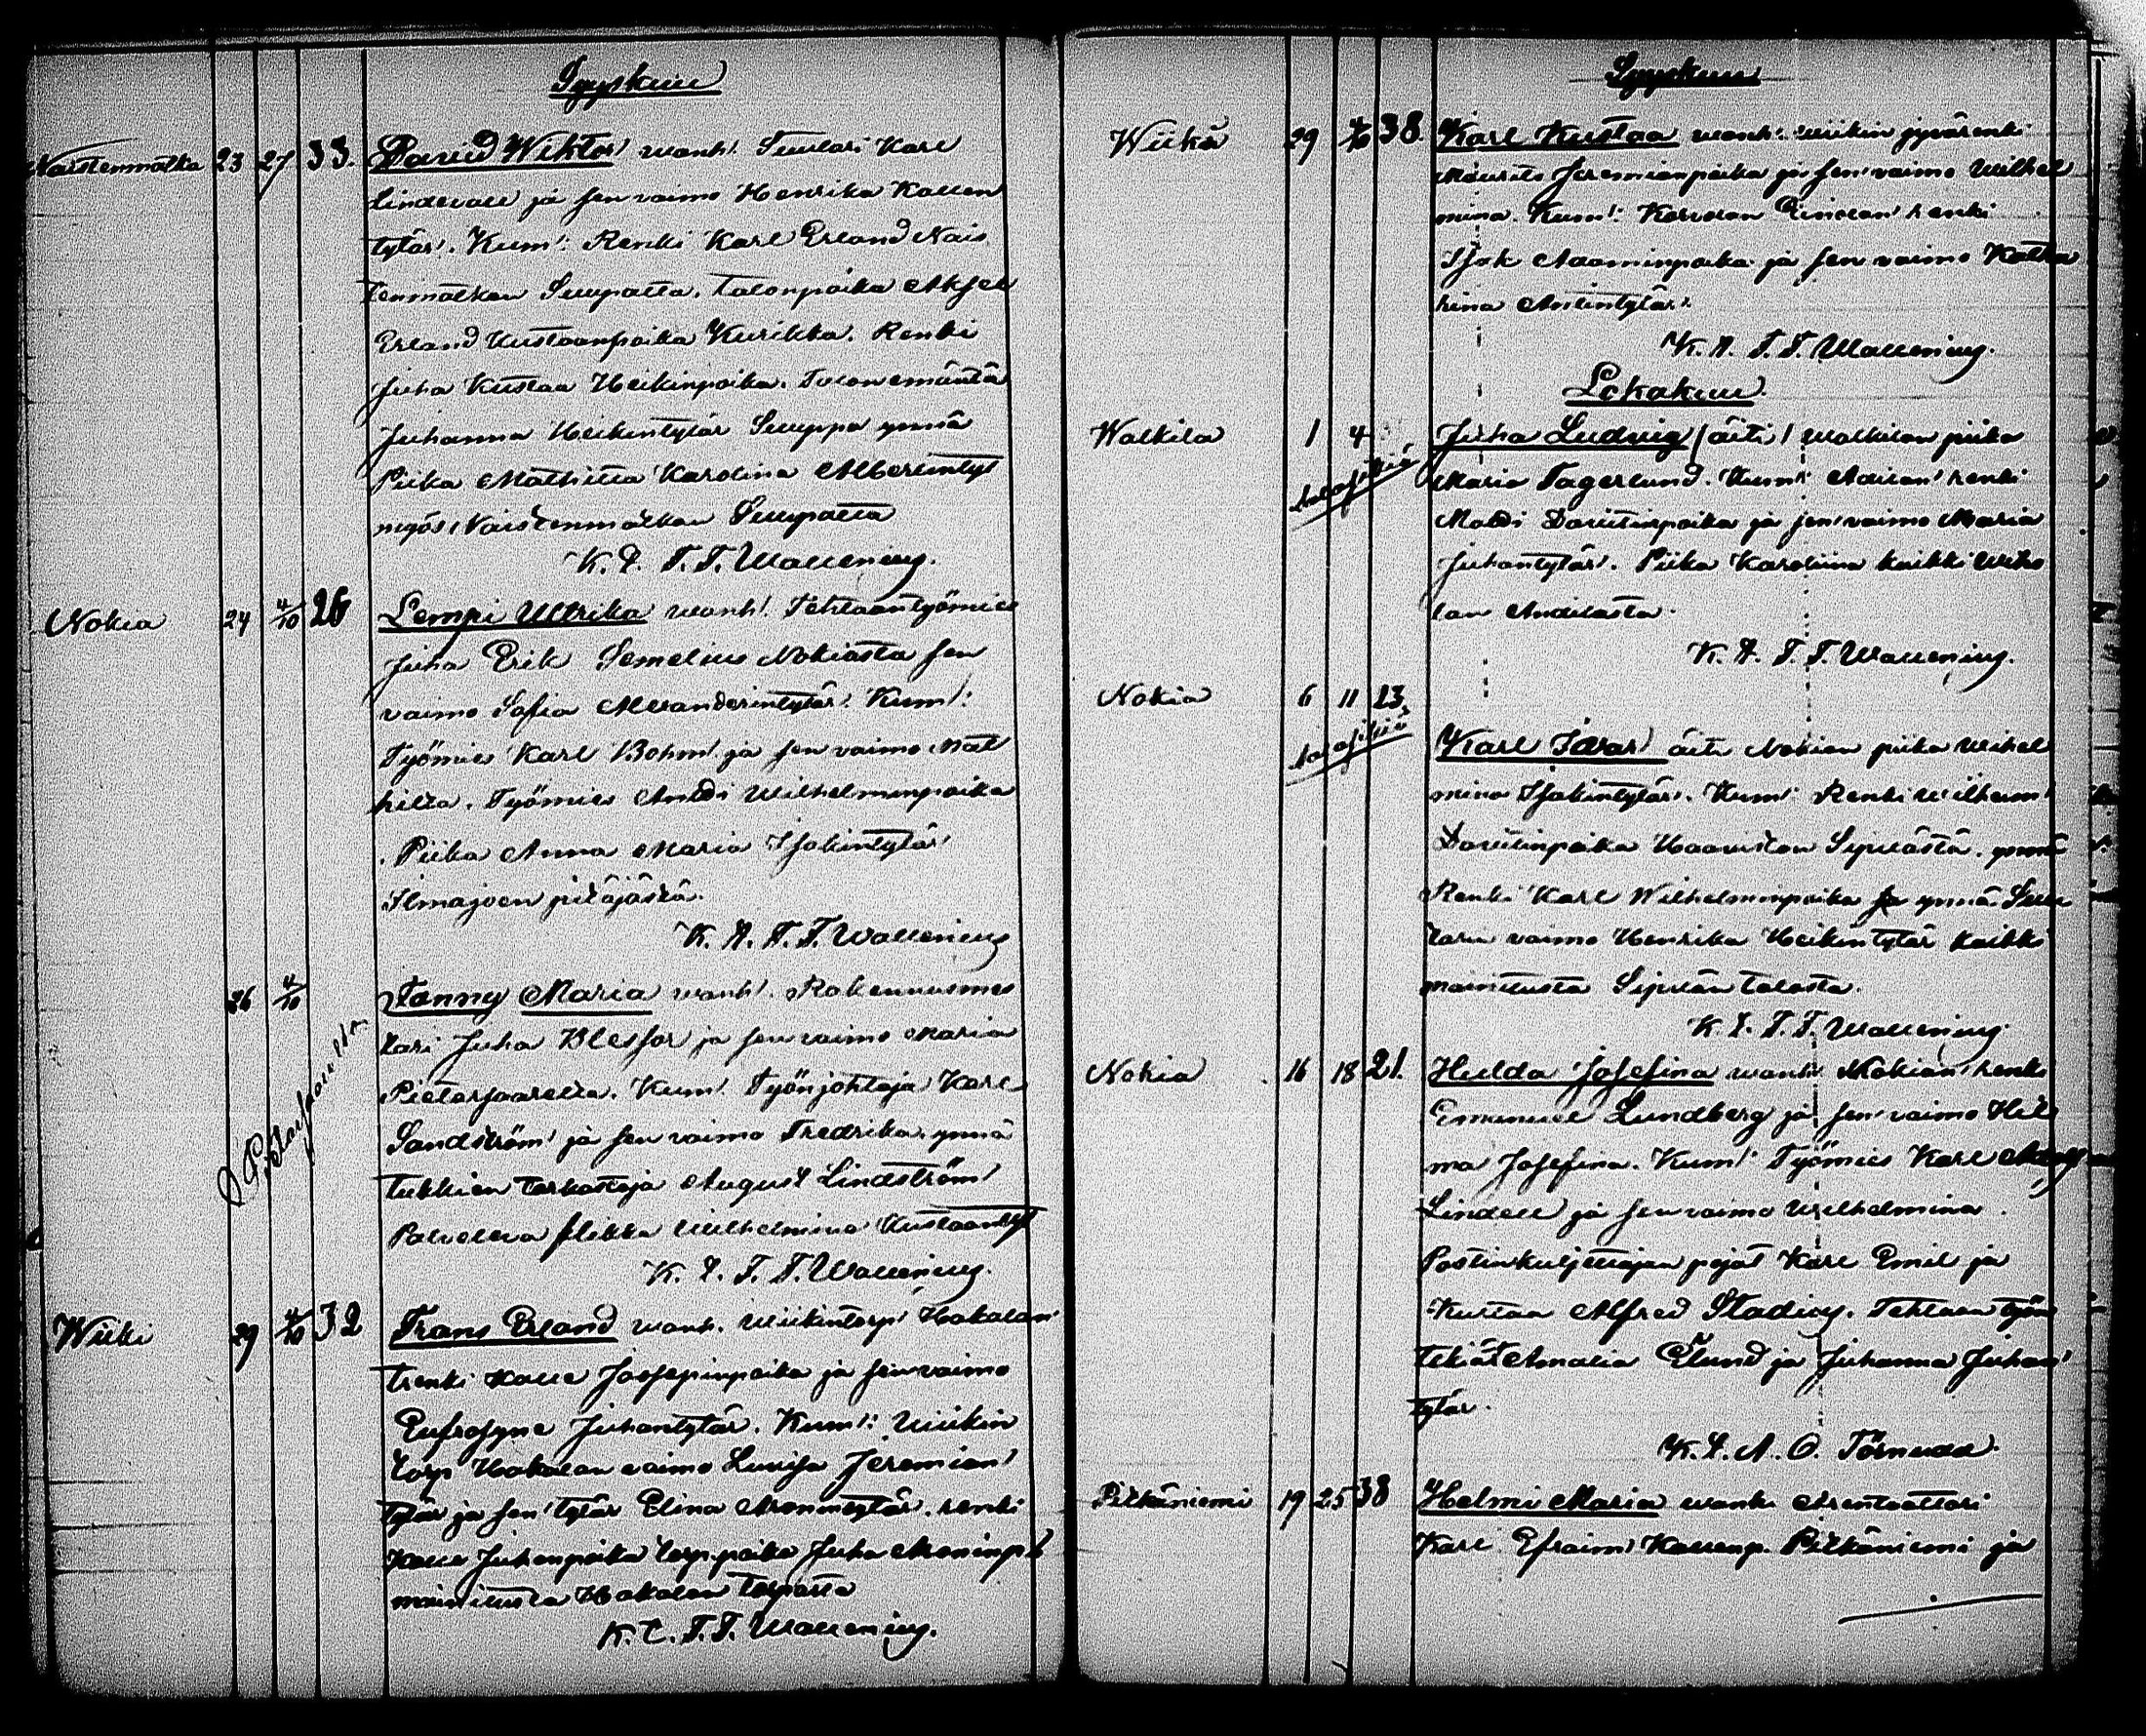 Syyskuu
Naistenmatka 23 27 33. David Wiktor wanh. Suutari Karl
Lindevall ja sen vaimo Henrika Kallen
tytär. Kum: Renki Karl Erland Nais
tenmatkan Seuppalla, talonpoika Aksel
Erland Kustaanpoika Kurikka. Renki
Juha Kustaa Heikinpoika. Talonemäntä
Juhanna Heikintytär Seuppa ynnä
Piika Mathilla Karolina Albertintyt
myös Naistenmatkan Seuppalla
K. T. T. Wallenius.
Nokia 24 4/10 26 Lempi Ullrika wanh. Tehtaantyömies
Juha Erik Semelius Nokiasta sen
vaimo Sofia Alexanderintytär. Kum:
Työmies Karl Bohm ja sen vaimo Mat
hilla. Työmies Antti Wilhelminpoika
Piika Anna Maria Isakintytär
Ilmajoen pitäjästä.
K. A. T. T. Wallenius
26 4/10 Fanny Maria wanh. Rakennusmes
tari Juha Blessar ja sen vaimo Maria
Pietarsaarella. Kum. Työnjohtaja Karl
Sandström ja sen vaimo Fredrika, ynnä
tukkien tarkastaja August Lindström
Palveleva flikka Wilhelmina Kustaantyt
K. T. T. Wallenius.
Wiiki 29 4/10 32 Frans Erland wanh. Wiikintorp Hakalan
trenki Kalle Joosepinpoika ja sen vaimo
Eufrosyne Juhantytär. Kum: Wiikin
torp Hakalan vaimo Luvisa Jeremian
tytär ja sen tytär Elina Aronintytär. renki
Kalle Juhanpoika torp.poika Juha Aroninp.
mainitusta Hakalan torpasta
K. T. T. Wallenius.
Syyskuu
Wiikä 29 4/10 38. Karl Kustaa wanh. Wiikin jyvärenki
Maurits Jeremianpoika ja sen vaimo Wilhel
mina. Kum: Korvolan renki
Isak Adaminpoika ja sen vaimo Katha
rina Antintytär.
K. A. T. T. Wallenius.
Lokakuu.
Walkila 1 4 Juha Ludvig (äiti) Walkilan piika
Maria Fagerlund. Kum: renki
Matti Davitinpoika ja sen vaimo Maria
Juhantytär. Piika Karoliina kaikki
K. A. T. T. Wallenius.
Nokia 6 11 23.
Karl Ivar äiti Nokian piika Wilhel
mina Isakintytär. Kum: Renki Wilhelm
Davitinpoika Haaviston Sipilästä. ynnä
Renki Karl Wilhelminpoika ja ynnä Suu
tarin vaimo Henrika Heikintytär kaikki
mainitusta Sipilän talosta.
K. T. T. Wallenius.
Nokia 16 18 21. Hulda Josefina wanh. Nokian renki
Emanuel Lundberg ja sen vaimo Hil
ma Josefina. Kum: Työmies Karl Adolf
Lindell ja sen vaimo Wilhelmina.
Postinkuljettajan pojat Karl Emil ja
Kustaa Alfred Stadius. Tehtaan työn
tekiät Amalia Elund ja Juhanna Juhan
tytär.
K. A. O. Törnudd.
Pitkäniemi 19 25 38 Helmi Maria wanh. Arentaattori
Karl Efraim Kallenp. Pitkäniemi ja